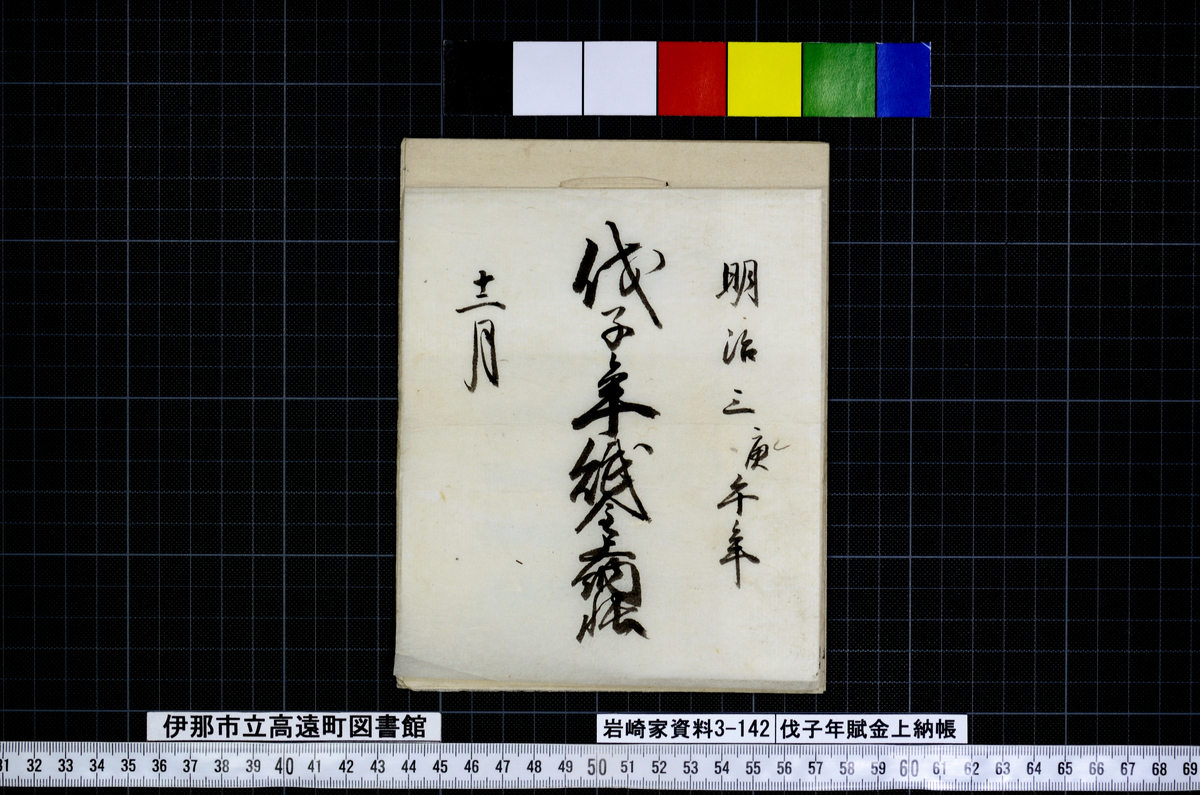 明治三庚午年
伐子年賦金上納帳
十二月
伊那市立高遠町図書館
岩崎家資料3-142 伐子年賦金上納帳
31 32 33 34 35 36 37 38 39 40 41 42 43 44 45 46 47 48 49 50 51 52 53 54 55 56 57 58 59 60 61 62 63 64 65 66 67 68 69